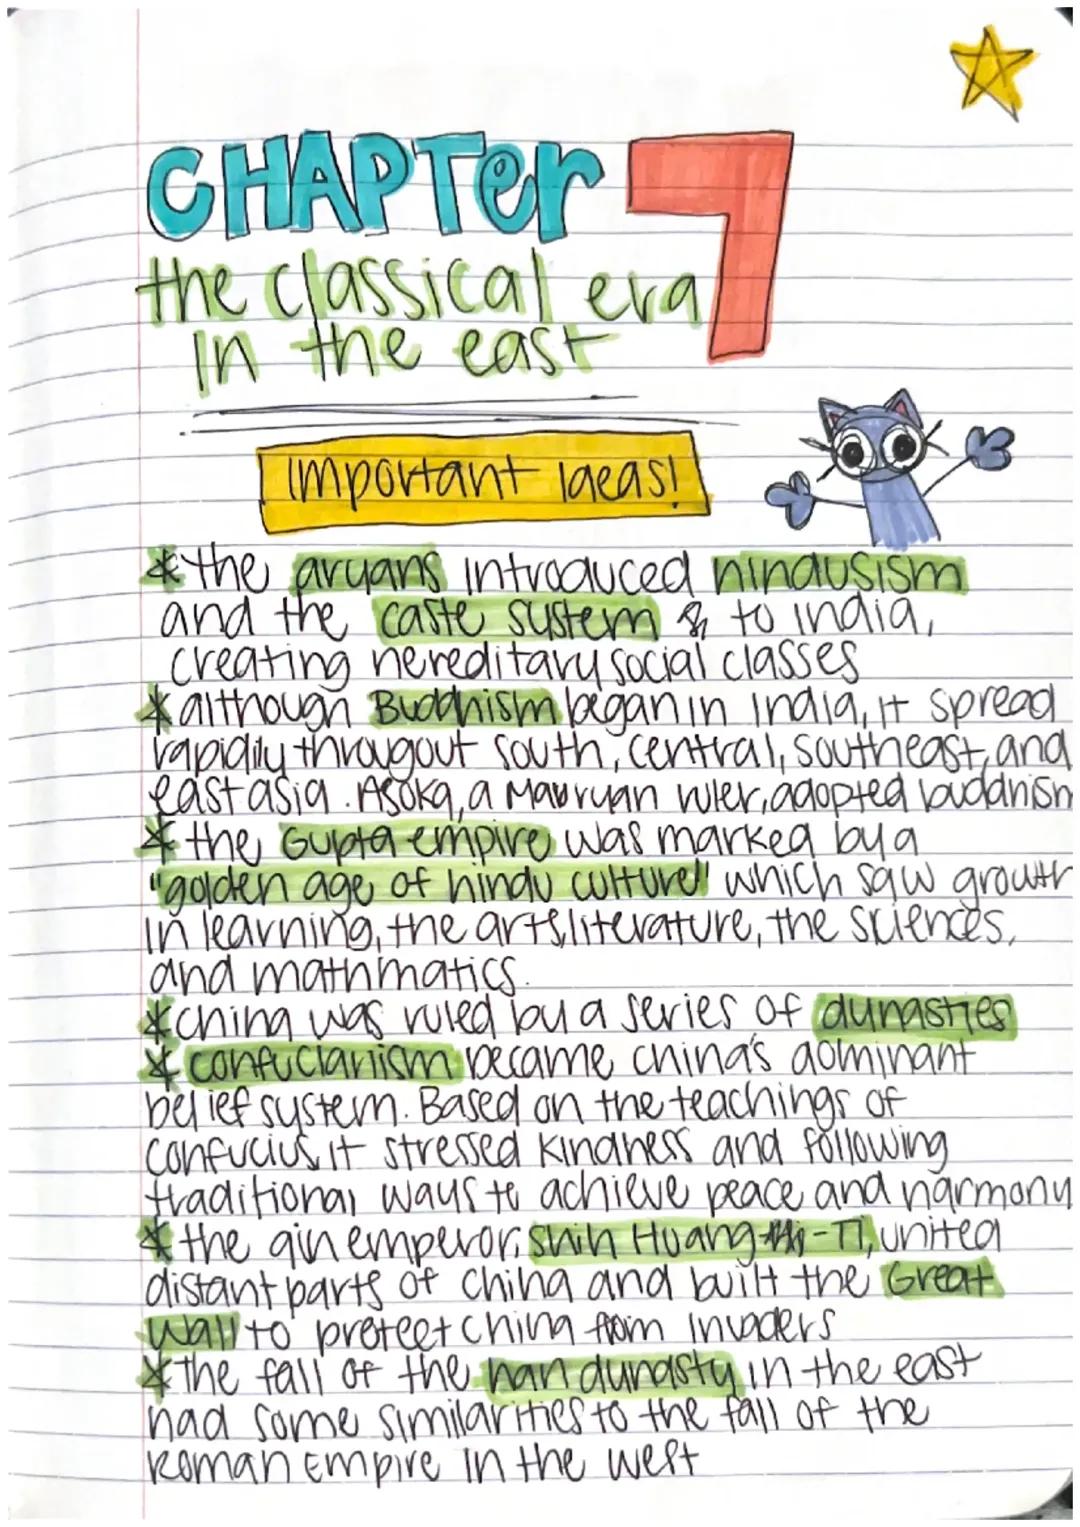 CHAPTer 7
the classical era
In the east
Important Ideas!
*the aryans introduced hindusism
and the caste system to india,
creating hereditary social classes
*although Buddhism began in India, it spread
rapidily througout south, central, southeast, and
east asia. Asoka, a Mauryan ruler, adopted buddhism
*the Gupta empire was marked by a
"golden age of hindu culture" which saw growth
in learning, the arts, literature, the sciences,
and mathmatics.
*china was ruled by a series of dynasties
*confucianism became china's dominant
belief system. Based on the teachings of
confucius, it stressed kindness and following
traditional ways to achieve peace and harmony
*the qin emperor, Shih Huang-Ti, united
distant parts of china and built the Great
Wall to protect china from invaders
*the fall of the han dynasty in the east
had some similarities to the fall of the
Roman Empire in the west